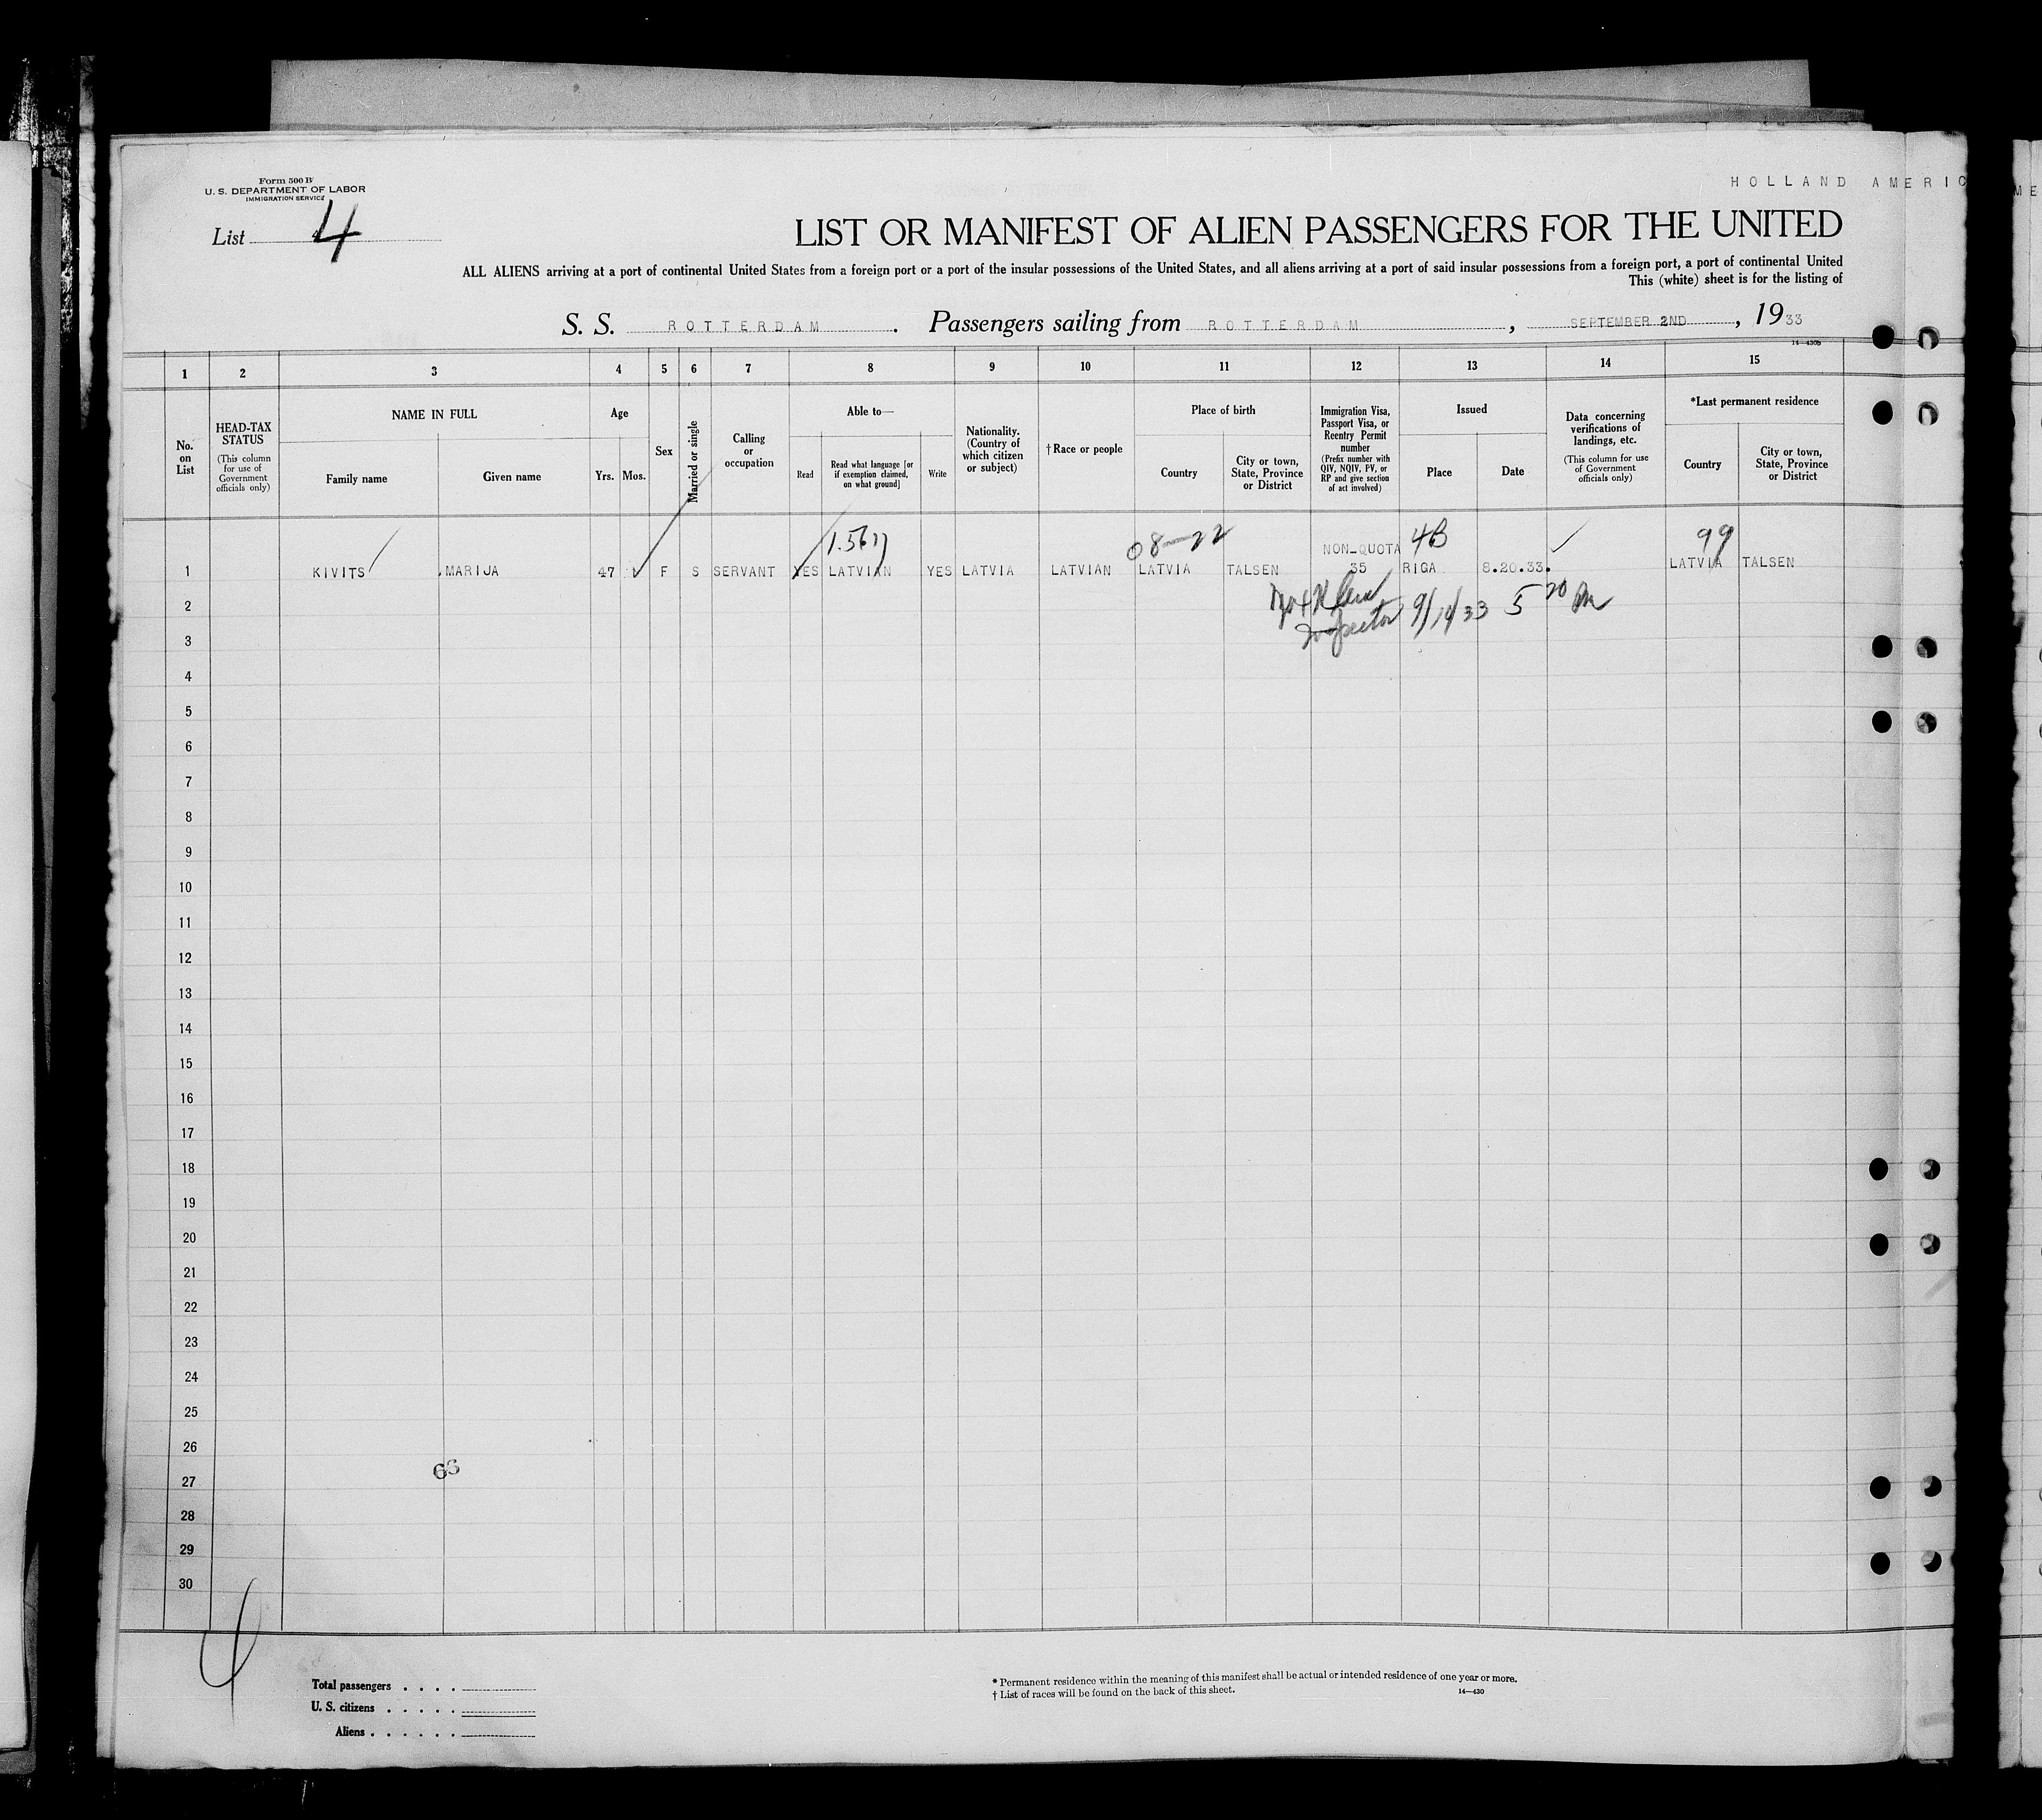 Form 500 B
U. S. DEPARTMENT OF LABOR
IMMIGRATION SERVICE
HOLLAND AMERIC
List 4
LIST OR MANIFEST OF ALIEN PASSENGERS FOR THE UNITED
ALL ALIENS arriving at a port of continental United States from a foreign port or a port of the insular possessions of the United States, and all aliens arriving at a port of said insular possessions from a foreign port, a port of continental United
This (white) sheet is for the listing of
S. S. ROTTERDAM. Passengers sailing from ROTTERDAM, SEPTEMBER 2ND, 1933
14—430B
1 2 3 4 5 6 7 8 9 10 11 12 13 14 15
No. on List
HEAD-TAX STATUS
(This column for use of Government officials only)
NAME IN FULL
Family name
Given name
Age
Yrs. Mos.
Sex
Married or single
Calling or occupation
Able to—
Read
Read what language [or if exemption claimed, on what ground]
Write
Nationality. (Country of which citizen or subject)
† Race or people
Place of birth
Country
City or town, State, Province or District
Immigration Visa, Passport Visa, or Reentry Permit number
(Prefix number with QIV, NQIV, PV, or RP and give section of act involved)
Issued
Place
Date
Data concerning verifications of landings, etc.
(This column for use of Government officials only)
*Last permanent residence
Country
City or town, State, Province or District
08-22 NON-QUOTA 4B 99
1 KIVITS MARIJA 47 F S SERVANT YES LATVIAN YES LATVIA LATVIAN LATVIA TALSEN 35 RIGA 8.20.33. LATVIA TALSEN
2
Inspector 9/14/33 5 20 PM
3
4
5
6
7
8
9
10
11
12
13
14
15
16
17
18
19
20
21
22
23
24
25
26
63
27
28
29
30
4
Total passengers . . . .
U. S. citizens . . . . .
Aliens . . . . . .
* Permanent residence within the meaning of this manifest shall be actual or intended residence of one year or more.
† List of races will be found on the back of this sheet.
14—430